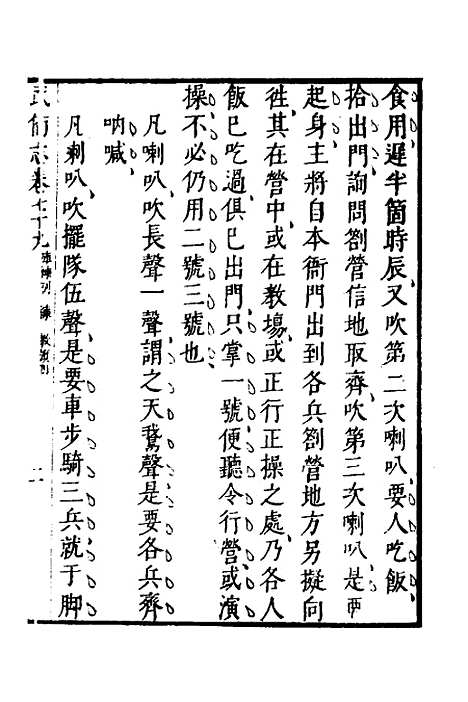 食用遲半箇時辰又吹第二次喇叭要人吃飯
拾出門詢問劄營信地取齊吹第三次喇叭是要
起身主將自本衙門出到各兵劄營地方另擬向
徃其在營中或在教場或正行正操之處乃各人
飯已吃過俱已出門只掌一號便聽令行營或演
操不必仍用二號三號也
凡喇叭吹長聲一聲謂之天鵞聲是要各兵齊
吶喊
凡喇叭吹擺隊伍聲是要車步騎三兵就于脚
武備志卷七十九 陣練制 練 教旗